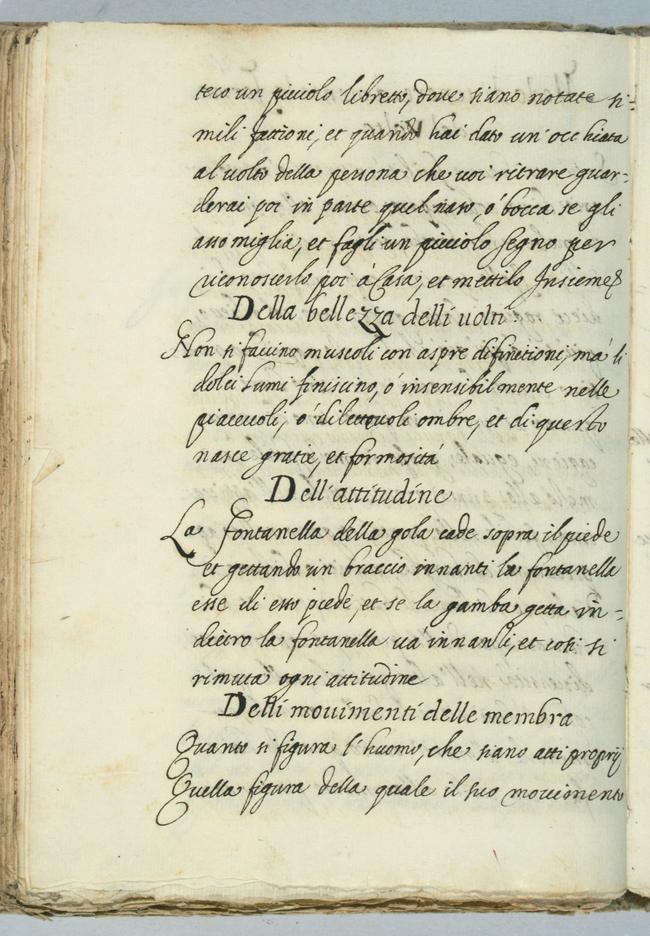 teco un picciolo libretto, dove siano notate si-
mili fattioni, et quando hai dato un'occhiata
al volto della persona che voi ritrare guar-
derai poi in parte quel naso, ó bocca se gli
assomiglia, et fagli un picciolo segno per
riconoscerlo poi á Casa, et mettilo Insieme
Della bellezza delli volti
Non si faccino muscoli con aspre difinitioni, má li
dolci lumi finiscino, ó insensibilmente nelle
piacevoli, ó dilettevoli ombre, et di questo
nasce gratie, et formositá
Dell'attitudine
La fontanella della gola cade sopra il piede
et gettando un braccio innanti la fontanella
esse di esso piede, et se la gamba getta in-
dietro la fontanella vá innanti, et cosi si
rimuta ogni attitudine
Delli movimenti delle membra
Quanto si figura l'huomo, che siano atti proprij
Quella figura della quale il suo movimento